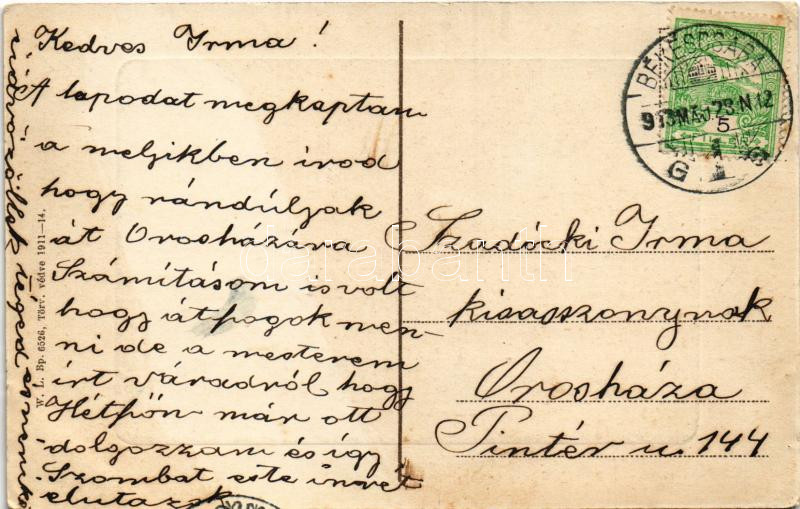 Kedves Irma!
A lapodat megkaptam
a meljikben irod
hogy rándúljak
át Orosházára
Számításom is volt
hogy átfogok men-
ni de a mesterem
írt Váradról hogy
Hétfőn már ott
dolgozzam és így
Szombat este innét
elutazok
üdvözöllek téged
W. L. Bp. 6526, Törv. védve 1911—14.
BÉKÉSCSABA
913 MÁJ. 23. N 12
5
G
Szadócki Irma
kisasszonynak
Orosháza
Pintér u. 144
darabanth